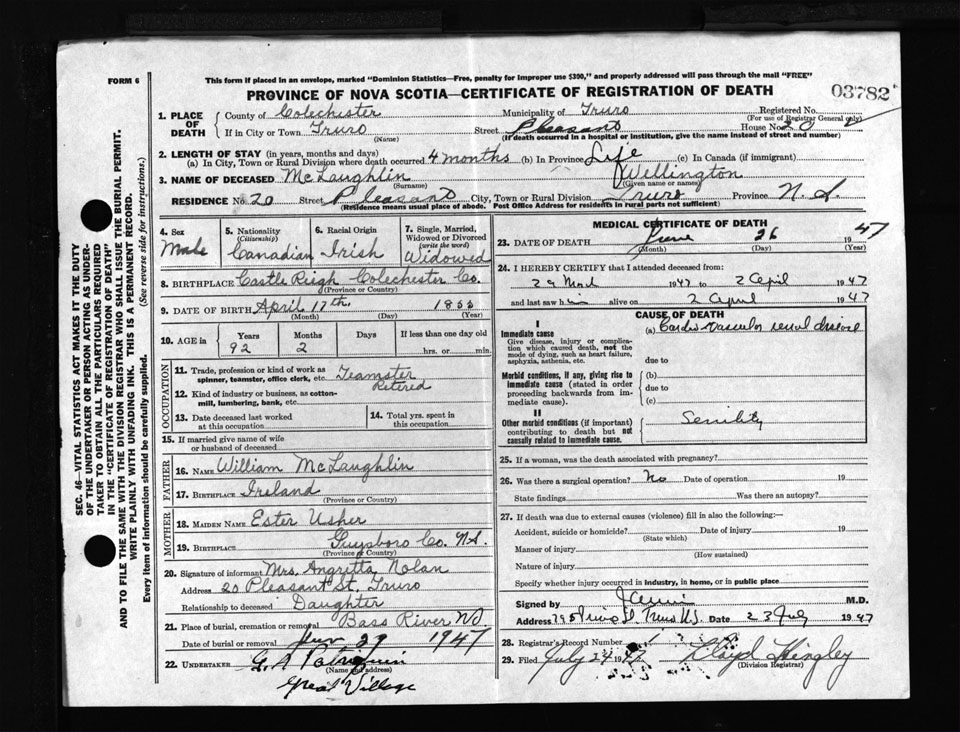 FORM 6
This form if placed in an envelope, marked "Dominion Statistics—Free, penalty for improper use $300," and properly addressed will pass through the mail "FREE"
PROVINCE OF NOVA SCOTIA—CERTIFICATE OF REGISTRATION OF DEATH
03782
1. PLACE OF DEATH
County of Colechester Municipality of Truro Registered No.
(For use of Registrar General only)
If in City or Town Truro Street Pleasant House No. 20
(Name) (If death occurred in a hospital or institution, give the name instead of street and number)
2. LENGTH OF STAY (in years, months and days)
(a) In City, Town or Rural Division where death occurred 4 months (b) In Province Life (c) In Canada (if immigrant)
3. NAME OF DECEASED McLaughlin Willington
(Surname) (Given name or names)
RESIDENCE No. 20 Street Pleasant City, Town or Rural Division Truro Province N.S.
(Residence means usual place of abode. Post Office Address for residents in rural parts not sufficient)
4. Sex
Male
5. Nationality (Citizenship)
Canadian
6. Racial Origin
Irish
7. Single, Married, Widowed or Divorced (write the word)
Widowed
8. BIRTHPLACE Castle Reigh Colechester Co.
(Province or Country)
9. DATE OF BIRTH April 17th
(Month) (Day) (Year)
10. AGE in Years 92 Months 2 Days If less than one day old
hrs. or min.
OCCUPATION
11. Trade, profession or kind of work as spinner, teamster, office clerk, etc. Teamster
Retired
12. Kind of industry or business, as cotton-mill, lumbering, bank, etc.
13. Date deceased last worked at this occupation
14. Total yrs. spent in this occupation
15. If married give name of wife or husband of deceased
FATHER
16. NAME William McLaughlin
17. BIRTHPLACE Ireland
(Province or Country)
MOTHER
18. MAIDEN NAME Ester Usher
19. BIRTHPLACE Guysboro Co. N.S.
(Province or Country)
20. Signature of informant Mrs. Angretta Nolan
Address 20 Pleasant St. Truro
Relationship to deceased Daughter
21. Place of burial, cremation or removal Bass River NS
Date of burial or removal 29 1947
22. UNDERTAKER
(Name and address)
Great Village
MEDICAL CERTIFICATE OF DEATH
23. DATE OF DEATH June 26 1947
(Month) (Day) (Year)
24. I HEREBY CERTIFY that I attended deceased from:
1947 to 2 April 1947
and last saw him alive on 2 April 1947
CAUSE OF DEATH
I
Immediate cause
Give disease, injury or complication which caused death, not the mode of dying, such as heart failure, asphyxia, asthenia, etc.
(a) Cardio-Vascular renal disease
due to
Morbid conditions, if any, giving rise to immediate cause (stated in order proceeding backwards from immediate cause).
(b)
due to
(c)
II
Other morbid conditions (if important) contributing to death but not causally related to immediate cause.
Senility
25. If a woman, was the death associated with pregnancy?
26. Was there a surgical operation? No Date of operation 19
State findings Was there an autopsy?
27. If death was due to external causes (violence) fill in also the following:—
Accident, suicide or homicide? Date of injury 19
(State which)
Manner of injury
(How sustained)
Nature of injury
Specify whether injury occurred in industry, in home, or in public place
Signed by M.D.
Address Date 23 July 1947
28. Registrar's Record Number
29. Filed July 24 1947
(Division Registrar)
SEC. 46—VITAL STATISTICS ACT MAKES IT THE DUTY
OF THE UNDERTAKER OR PERSON ACTING AS UNDER-
TAKER TO OBTAIN ALL THE PARTICULARS REQUIRED
IN THE "CERTIFICATE OF REGISTRATION OF DEATH"
AND TO FILE THE SAME WITH THE DIVISION REGISTRAR WHO SHALL ISSUE THE BURIAL PERMIT.
WRITE PLAINLY WITH UNFADING INK. THIS IS A PERMANENT RECORD.
Every item of information should be carefully supplied. (See reverse side for instructions.)